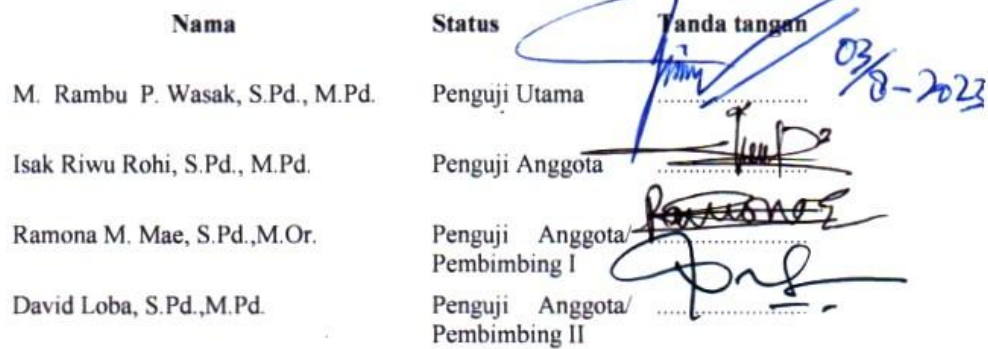 Nama Status Tanda tangan
03/8-2023
M. Rambu P. Wasak, S.Pd., M.Pd. Penguji Utama ....................
Isak Riwu Rohi, S.Pd., M.Pd. Penguji Anggota ....................
Ramona M. Mae, S.Pd.,M.Or. Penguji Anggota/ ....................
Pembimbing I
David Loba, S.Pd.,M.Pd. Penguji Anggota/ ....................
Pembimbing II